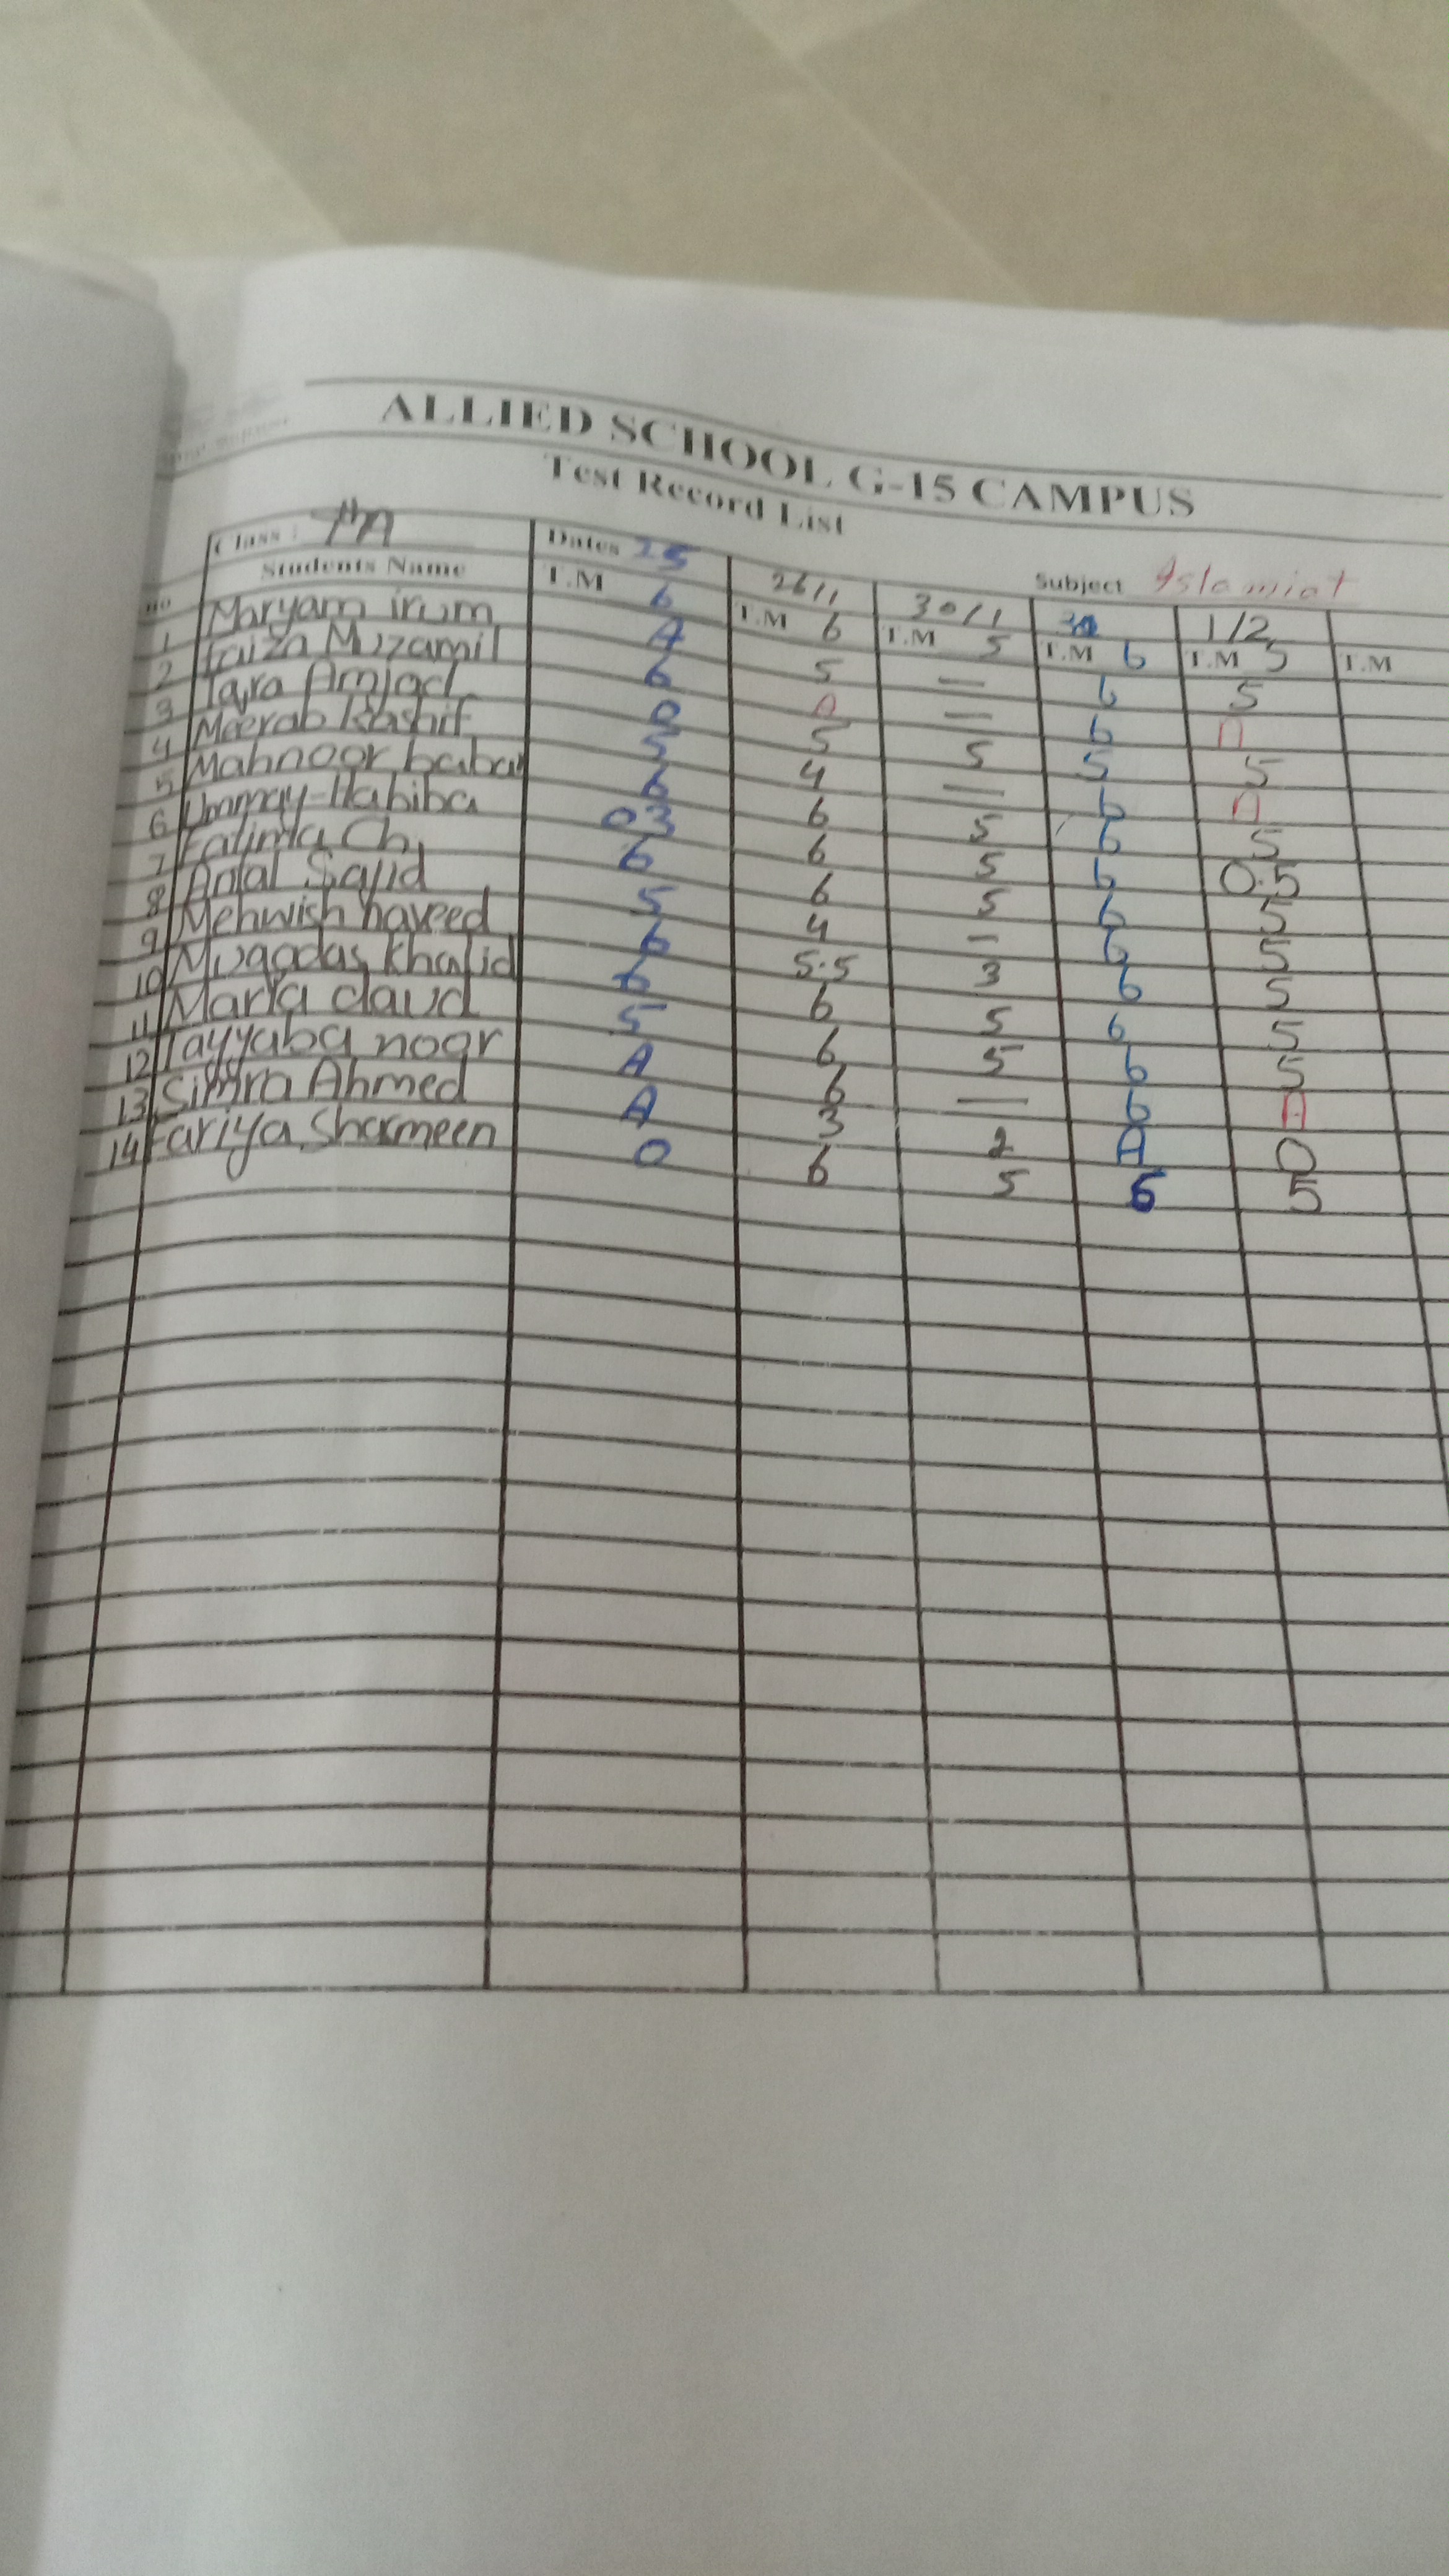 ALLIED SCHOOL G-15 CAMPUS
Test Record List
Class : 7thA Dates 25 26/1 30/1 Subject Islamiat 1/2
Students Name T.M 6 T.M 6 T.M 5 T.M 6 T.M 5 T.M
1 Maryam irum A 5 — 6 5
2 Faiza Muzamil 6 A — 6 A
3 Tajra Amjad 0 5 5 5 5
4 Meerab Kashif 5 4 — 6 A
5 Mahnoor babar 6 6 5 6 5
6 Ummay-Habiba 03 6 5 6 0.5
7 Fatima Ch 6 6 5 6 5
8 Antal Sajid 5 4 – 6 5
9 Mehwish naveed 6 5.5 3 6 5
10 Muqadas Khalid 6 6 5 6 5
11 Maria daud 5 6 5 6 5
12 Tayyaba noor A 6 — 6 A
13 Simra Ahmed A 3 2 A 0
14 Fariya Sharmeen 0 6 5 6 5